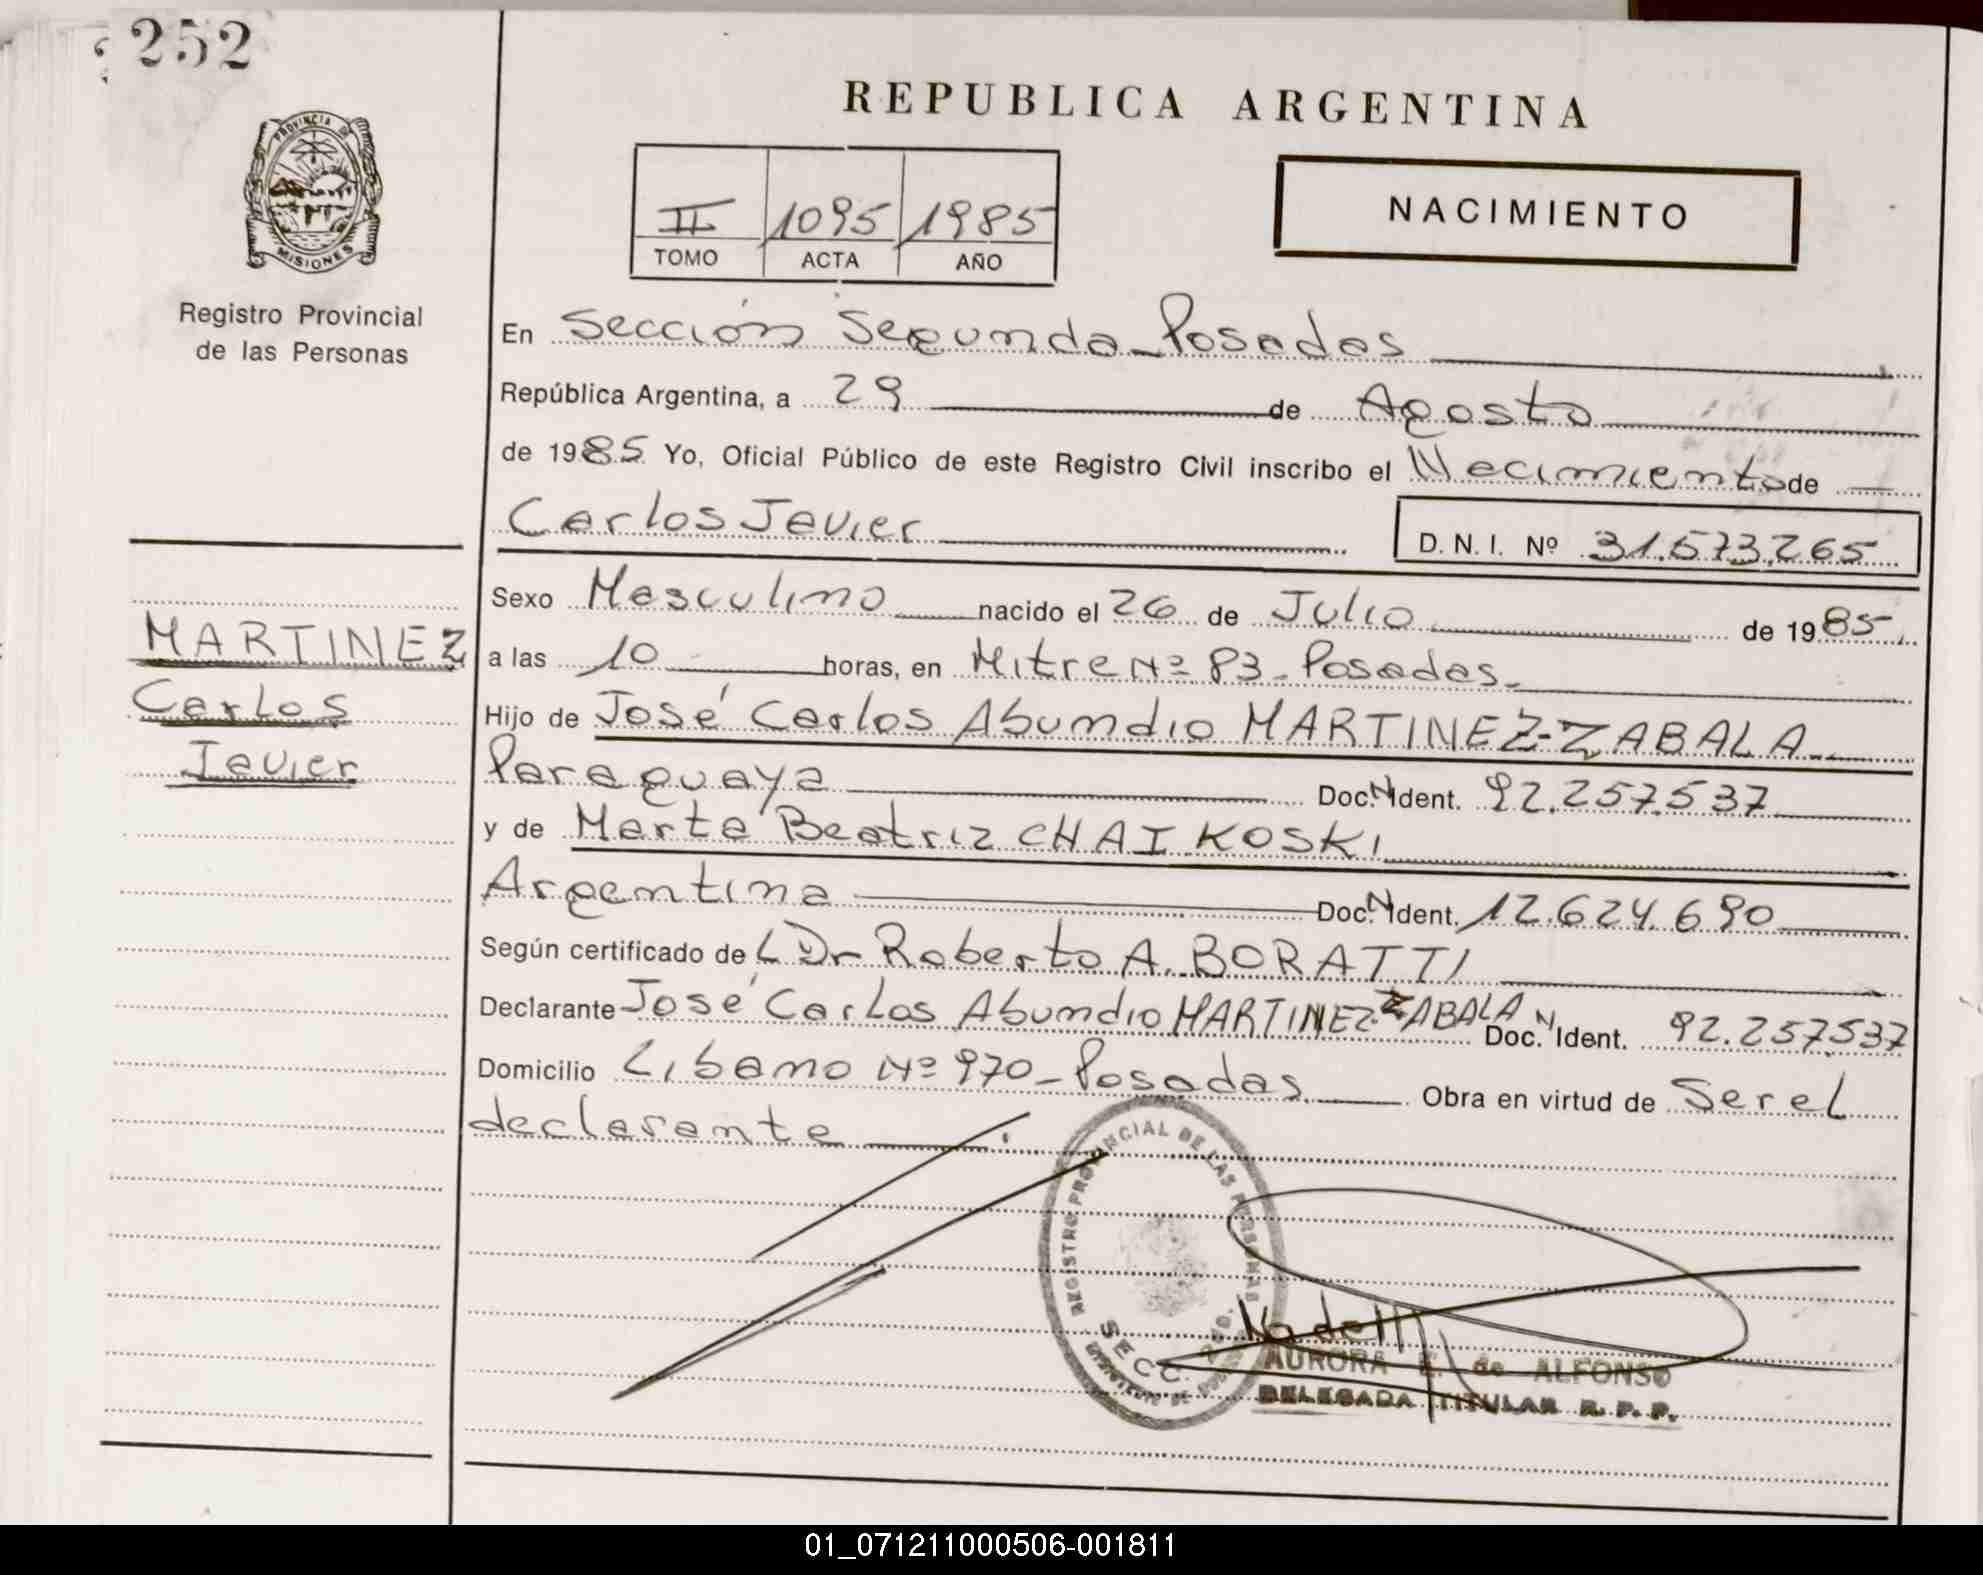 252
REPUBLICA ARGENTINA
PROVINCIA DE
MISIONES
Registro Provincial
de las Personas
II 1095 1985
TOMO ACTA AÑO
NACIMIENTO
En Sección Segunda Posadas
República Argentina, a 29 de Agosto
de 1985 Yo, Oficial Público de este Registro Civil inscribo el Nacimiento de
Carlos Javier D. N. I. Nº 31.573.265
Sexo Masculino nacido el 26 de Julio de 1985
MARTINEZ
Carlos
Javier
a las 10 horas, en Mitre Nº 83 - Posadas
Hijo de José Carlos Abundio MARTINEZ-ZABALA
Paraguaya Doc. N Ident. 92.257.537
y de Marta Beatriz CHAIKOSKI
Argentina Doc. N Ident. 12.624.690
Según certificado de L Dr Roberto A. BORATTI
Declarante José Carlos Abundio MARTINEZ ZABALA Doc. N Ident. 92.257.537
Domicilio Libano Nº 970 - Posadas Obra en virtud de Ser el
declarante
REGISTRO PROVINCIAL DE LAS PERSONAS
SECC.
AURORA E. de ALFONSO
DELEGADA TITULAR R. P. P.
01_071211000506-001811